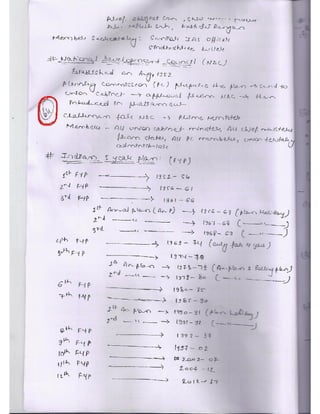 Member Secretary: Senior IAS officer
# National Development Council (NDC)
Established on Aug 1952
Planning Commission (PC) prepares the plan → send to
Union Cabinet → approval from NDC → then
Introduced in Parliament
Chairman for NDC → Prime Minister
Members - All union cabinet minister, All chief ministers
from states, All PC members, union territory
administrators
# Indian 5 year plan: (FYP)
1st FYP → 1951-56
2nd FYP → 1956-61
3rd FYP → 1961-66
1st Annual plan (AnP) → 1966-67 (plan Holiday)
2nd —"— → 1967-68 ( —"— )
3rd → 1968-69 ( —"— )
4th FYP → 1969-74
5th FYP → 1974-78
1st An plan → 1978-79
2nd —"—
6th FYP → 1980-85
7th FYP → 1985-90
1st An plan → 1990-91 (plan Holiday)
2nd —"— → 1991-92 ( —"— )
8th FYP → 1992-97
9th FYP → 1997-02
10th FYP → 2002-07
11th FYP
12th FYP